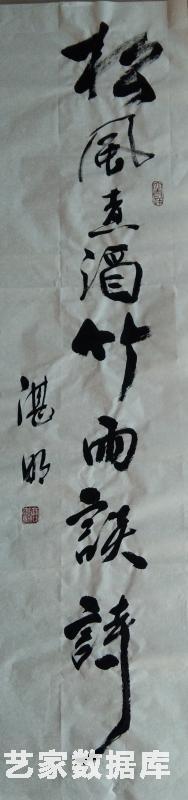 松風煮酒竹雨談詩
湛明
艺家数据库